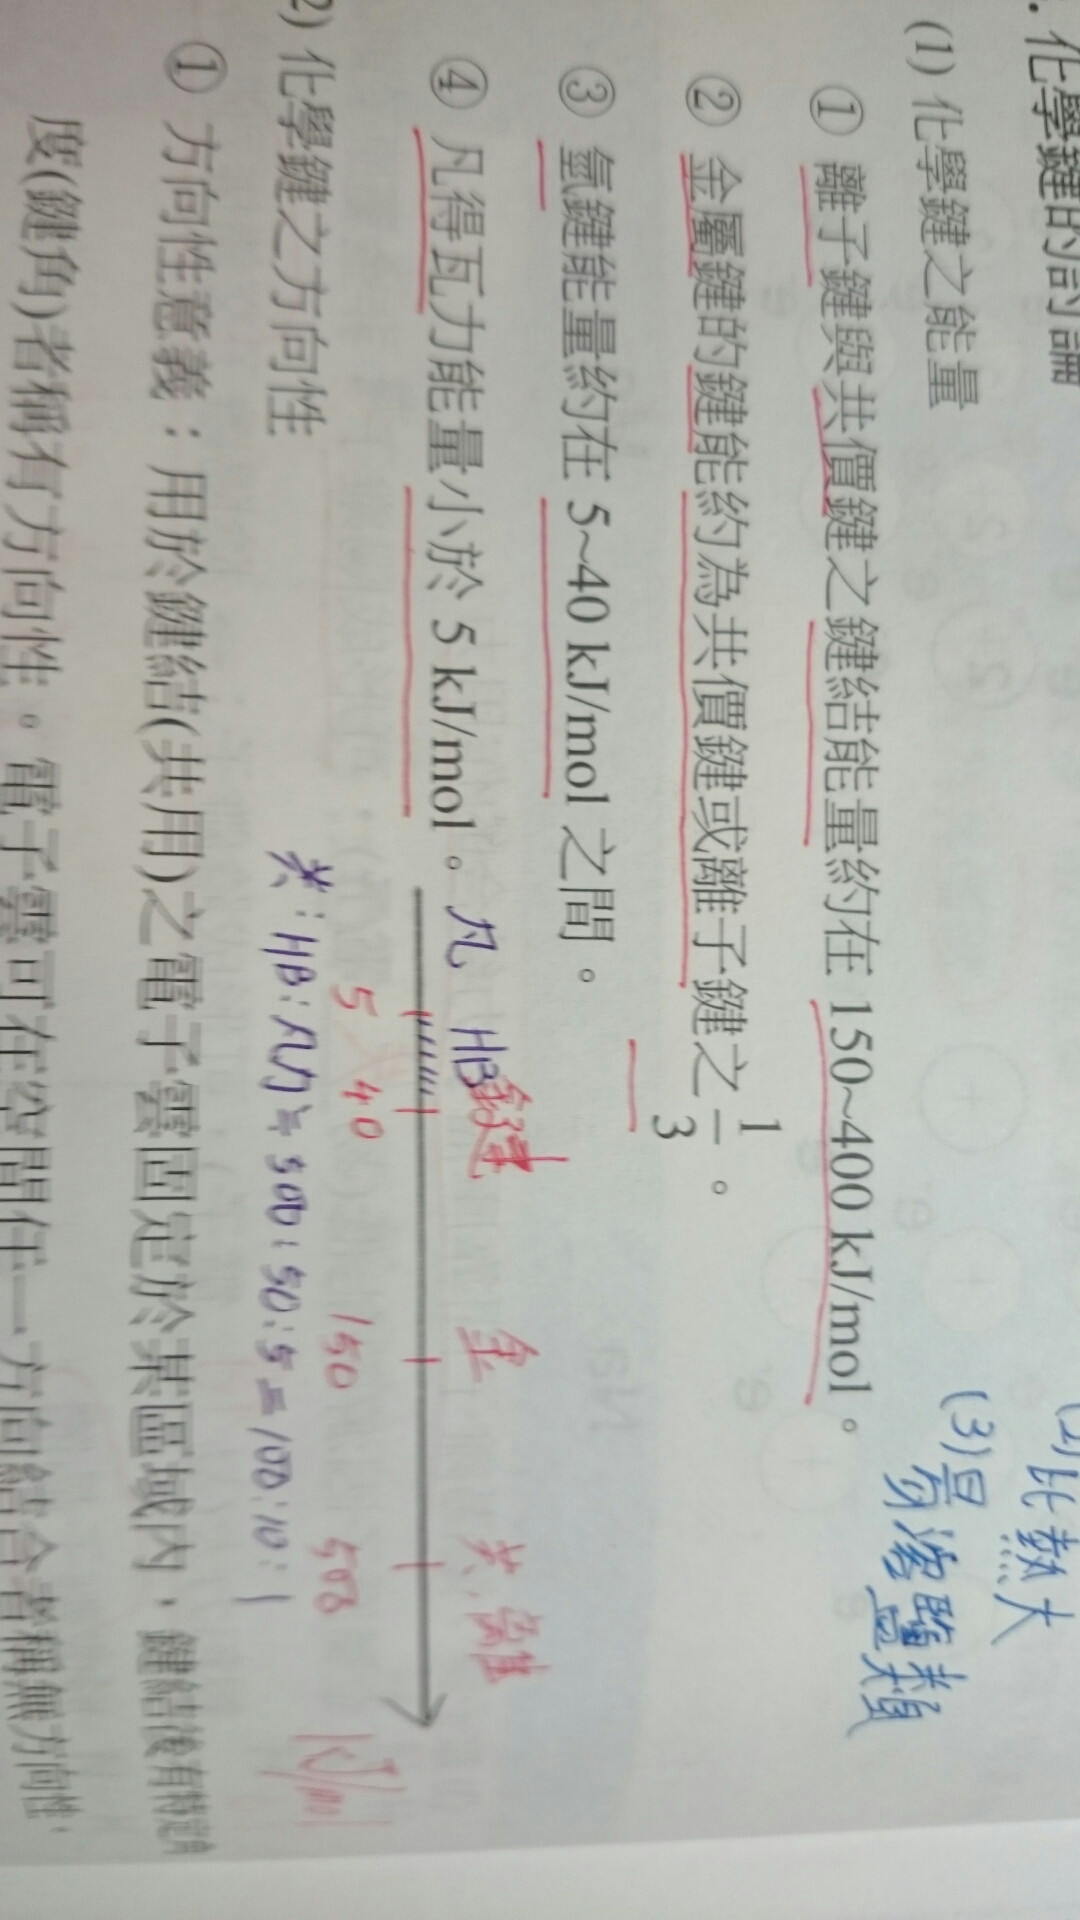 . 化學鍵的討論
(1) 化學鍵之能量
① 離子鍵與共價鍵之鍵結能量約在 150~400 kJ/mol。
② 金屬鍵的鍵能約為共價鍵或離子鍵之 1/3。
③ 氫鍵能量約在 5~40 kJ/mol 之間。
④ 凡得瓦力能量小於 5 kJ/mol。
凡 HB鍵 金 共,離
5 40 150 500 kJ/mol
共:HB:凡力≒500:50:5=100:10:1
2) 化學鍵之方向性
① 方向性意義:用於鍵結(共用)之電子雲固定於某區域內,鍵結後有特定角
度(鍵角)者稱有方向性。電子雲可在空間任一方向結合者稱無方向性,
比熱大
(3) 易溶鹽類